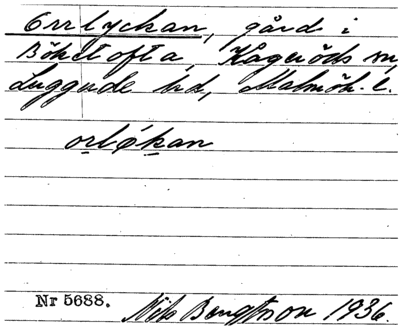 Orrlyckan, gård i
Böketofta, Kågeröds sn,
Luggude hd, Malmöh. l.
orløkan
Nr 5688.
Nils Bengtsson 1936.